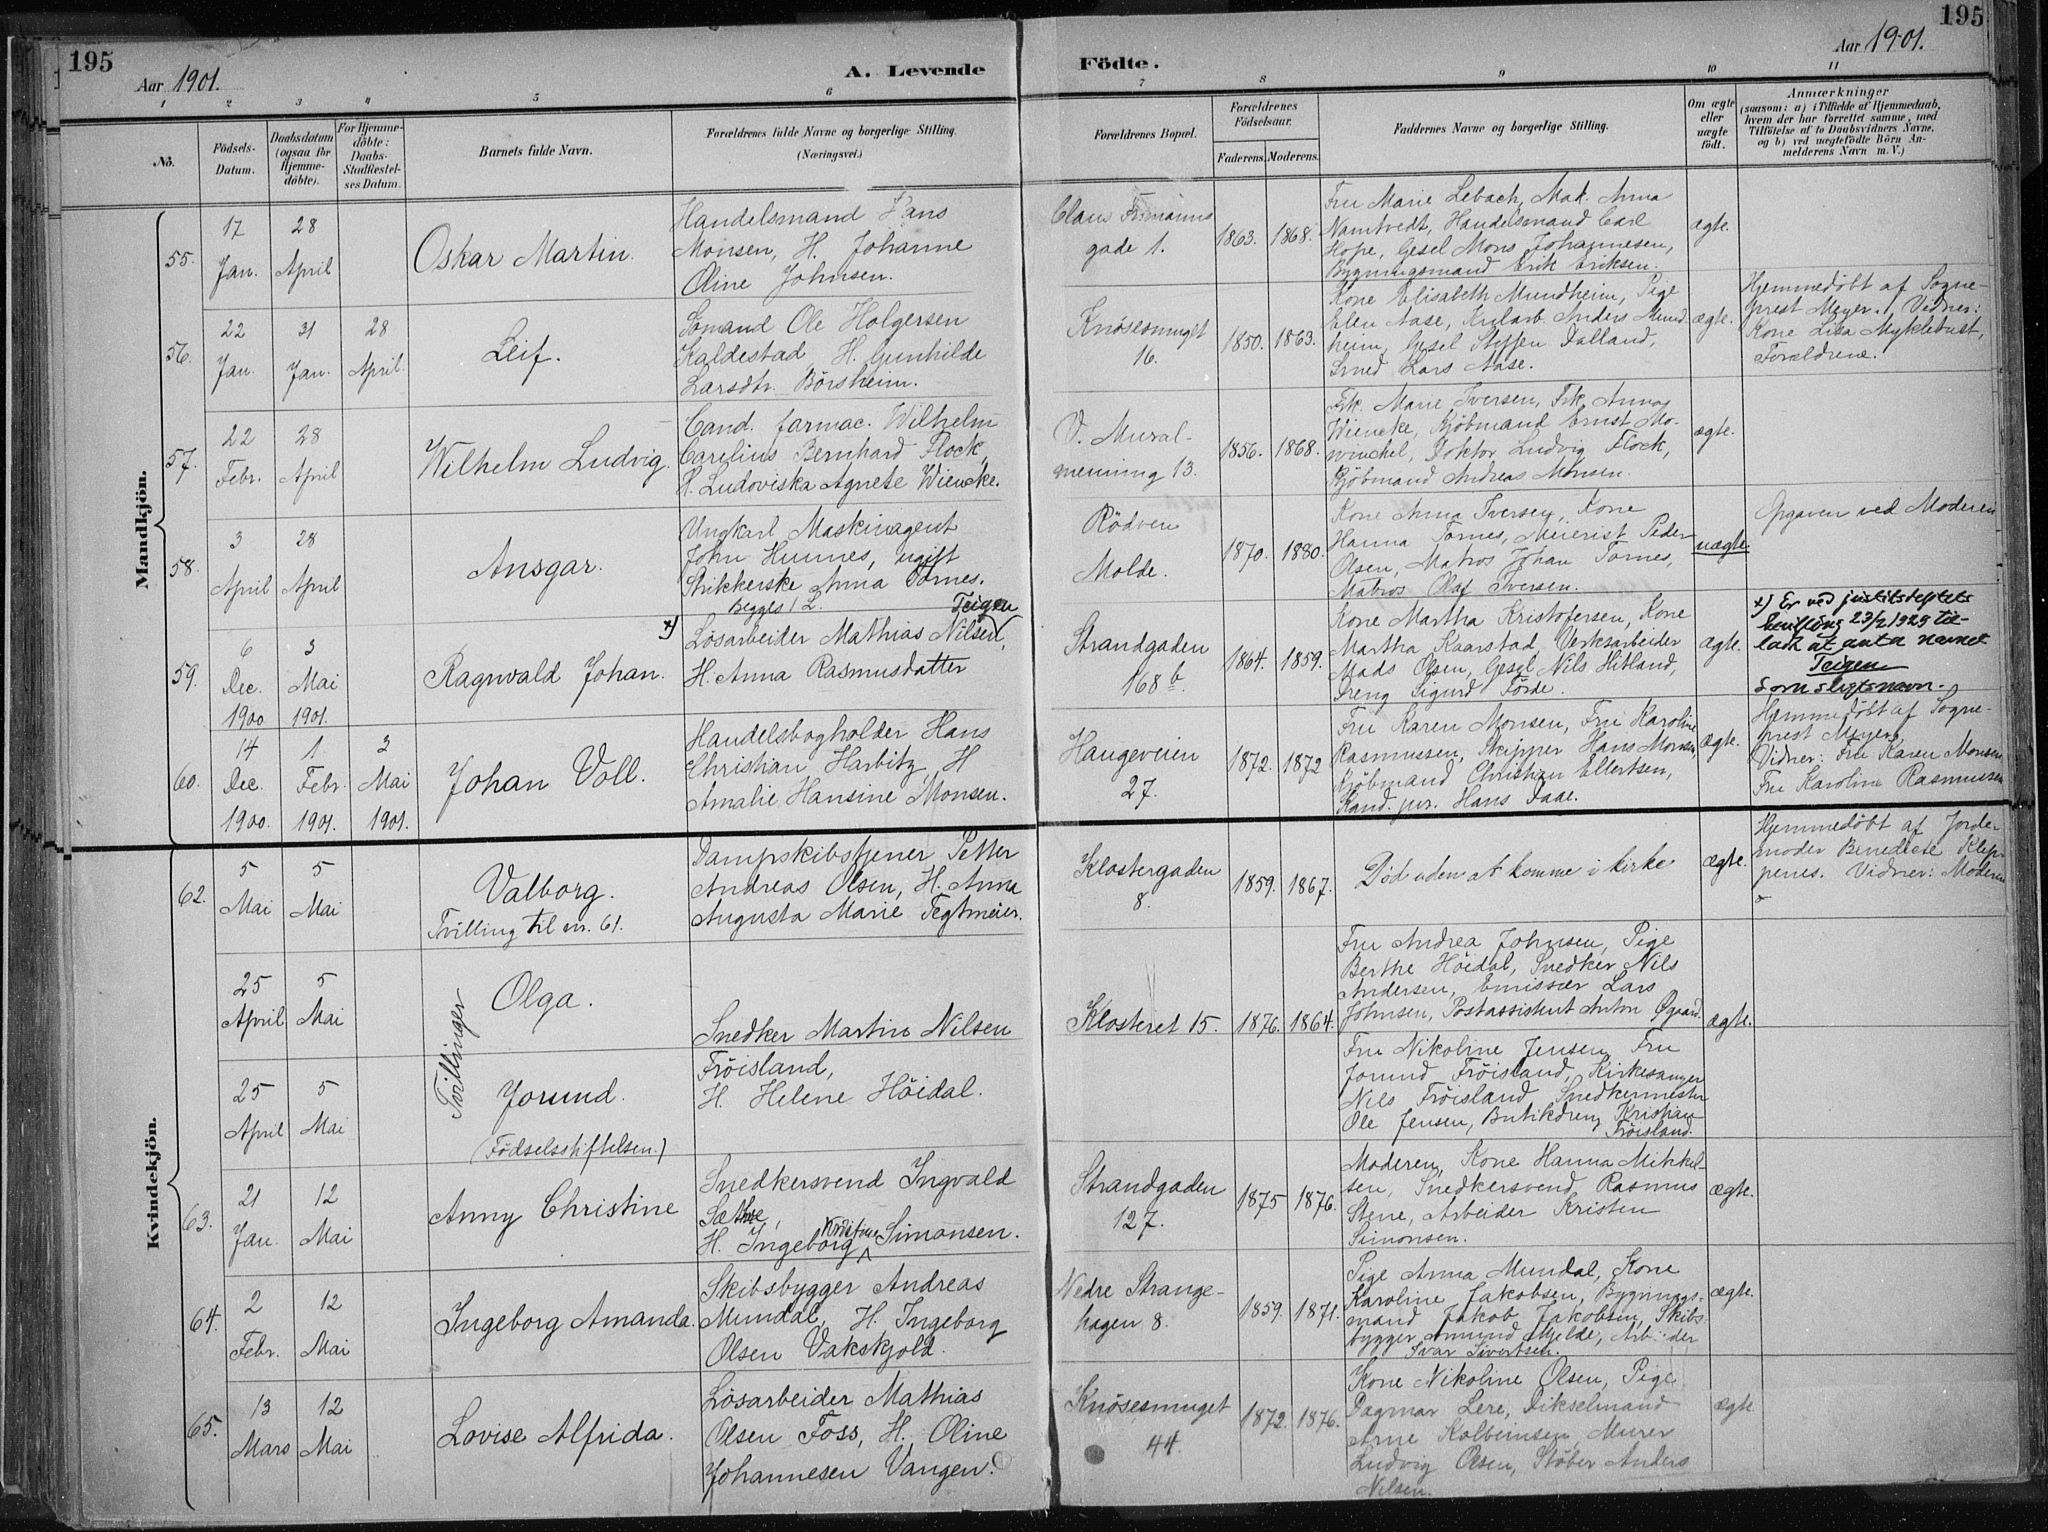 195
Aar 1901.
A. Levende
Födte.
Aar 1901.
195
1
2
3
4
5
6
7
8
9
10
11
No.
Födsels-
Datum.
Daabsdatum
(ogsaa for
Hjemme-
döbte).
For Hjemme-
döbte:
Daabs-
Stadfæstel-
ses Datum.
Barnets fulde Navn.
Forældrenes fulde Navne og borgerlige Stilling.
(Næringsvei.)
Forældrenes Bopæl.
Forældrenes
Födselsaar.
Faderens.
Moderens.
Faddernes Navne og borgerlige Stilling.
Om ægte
eller
uægte
födt.
Anmærkninger
(saasom: a) i Tilfælde af Hjemmedaab,
hvem der har forrettet samme, med
Tilföielse af to Daabsvidners Navne,
og b) ved uægtefödte Börn An-
melderens Navn m. V.)
Mandkjön.
55.
17
Jan.
28
April
Oskar Martin.
Handelsmand Hans
Monsen, H. Johanne
Oline Johnsen.
Claus Frimanns
gade 1.
1863.
1868.
Fru Marie Lebach, Mad. Anna
Namtvedt, Handelsmand Carl
Hope, Gesel Mons Johannesen,
Bygningsmand Erik Eriksen.
ægte.
56.
22
Jan.
31
Jan.
28
April.
Leif.
Sömand Ole Holgersen
Kaldestad H. Gunhilde
Larsdtr. Börsheim.
Knösesmuget
16.
1850.
1863.
Kone Elisabeth Mundheim, Pige
Elen Aase, Kularb. Anders Mund
heim, Gesel Steffen Dalland,
Smed Lars Aase.
ægte.
Hjemmedöbt af Sogne-
prest Meyer. Vidner:
Kone Lisa Myklebust,
Forældrene.
57.
22
Febr.
28
April
Wilhelm Ludvig.
Cand. farmac. Wilhelm
Carelius Bernhard Flock,
H. Ludoviska Agnete Wiencke.
V. Mural-
menning 13.
1856.
1868.
Frk. Marie Iversen, Frk. Anna
Wiencke, Kjöbmand Ernst Mo-
winckel, Doktor Ludvig Flock,
Kjöbmand Andreas Monsen.
ægte.
58.
3
April
28
April
Ansgar.
Ungkarl Maskinagent
John Hunnes, ugift
Strikkerske Anna Tornes.
Begges 1 L.
Rödven
Molde.
1870.
1880.
Kone Anna Iversen, Kone
Hanna Tornes, Meierist Peder
Olsen, Matros Johan Tornes,
Matros Olaf Iversen.
uægte.
Opgaven ved Moderen
59.
6
Dec.
1900
3
Mai
1901.
Ragnvald Johan.
x) Lösarbeider Mathias Nilsen, Teigen
H. Anna Rasmusdatter
Strandgaden
168 b.
1864.
1859.
Kone Martha Kristofersen, Kone
Martha Kaarstad, Verksarbeider
Mads Olsen, Gesel Nils Hitland,
Dreng Sigurd Förde.
ægte.
x) Er ved justitsdeptets
bevilling 23/2 1925 til-
ladt at anta navnet
Teigen
som slegtsnavn.
60.
14
Dec.
1900.
1
Febr.
1901.
3
Mai
1901.
Johan Voll.
Handelsbogholder Hans
Christian Harbitz, H
Amalie Hansine Monsen.
Haugeveien
27.
1872.
1872
Fru Karen Monsen, Fru Karoline
Rasmussen, Skipper Hans Monsen,
Kjöbmand Christian Ellertsen,
Kand. jur. Hans Daae.
ægte.
Hjemmedöbt af Sogne-
prest Meyer,
Vidner: Fru Karen Monsen
Fru Karoline Rasmussen
Kvindekjön.
62.
5
Mai
5
Mai
Valborg.
Tvilling til nr. 61.
Dampskibstjener Petter
Andreas Olsen, H. Anna
Augusta Marie Tegtmeier.
Klostergaden
8.
1859.
1867.
Död uden at komme i kirke
ægte.
Hjemmedöbt af Jorde-
moder Benedicte Klep-
penes. Vidner: Moderen
Tvillinger
25
April
5
Mai
Olga.
Snedker Martin Nilsen
Fröisland,
H. Helene Höidal.
Klosteret 15.
1876.
1864.
Fru Andrea Johnsen, Pige
Berthe Höidal, Snedker Nils
Andersen, Emissær Lars
Johnsen, Postassistent Anton Øgaard.
ægte.
25
April
5
Mai
Jorund.
(Födselsstiftelsen)
Fru Nikoline Jensen, Fru
Jorund Fröisland, Kirkesanger
Nils Fröisland Snedkermester
Ole Jensen, Butikdreng Kristian
Fröisland.
63.
21
Jan.
12
Mai
Anny Christine
Snedkersvend Ingvald
Sæthre,
H. Ingeborg Simonsen.
Strandgaden
127.
1875
1876.
Moderen, Kone Hanna Mikkel-
sen, Snedkersvend Rasmus
Stene, Arbeider Kristen
Simonsen.
ægte.
64.
2
Febr.
12
Mai
Ingeborg Amanda.
Skibsbygger Andreas
Mundal, H. Ingeborg
Olsen Vakskjold.
Nedre Strange-
hagen 8.
1859.
1871.
Pige Anna Mundal, Kone
Karoline Jakobsen, Bygnings-
mand Jakob Jakobsen, Skibs-
bygger Amund Mjelde, Arb.
Ivar Sivertsen.
ægte.
65.
13
Mars
12
Mai
Lovise Alfrida.
Lösarbeider Mathias
Olsen Foss, H. Oline
Johannesen Vangen.
Knösesmuget
44.
1872.
1876.
Kone Nikoline Olsen, Pige
Dagmar Lere, Dikselmand
Arne Kolbeinsen, Murer
Ludvig Olsen, Stöber Anders
Nilsen.
ægte